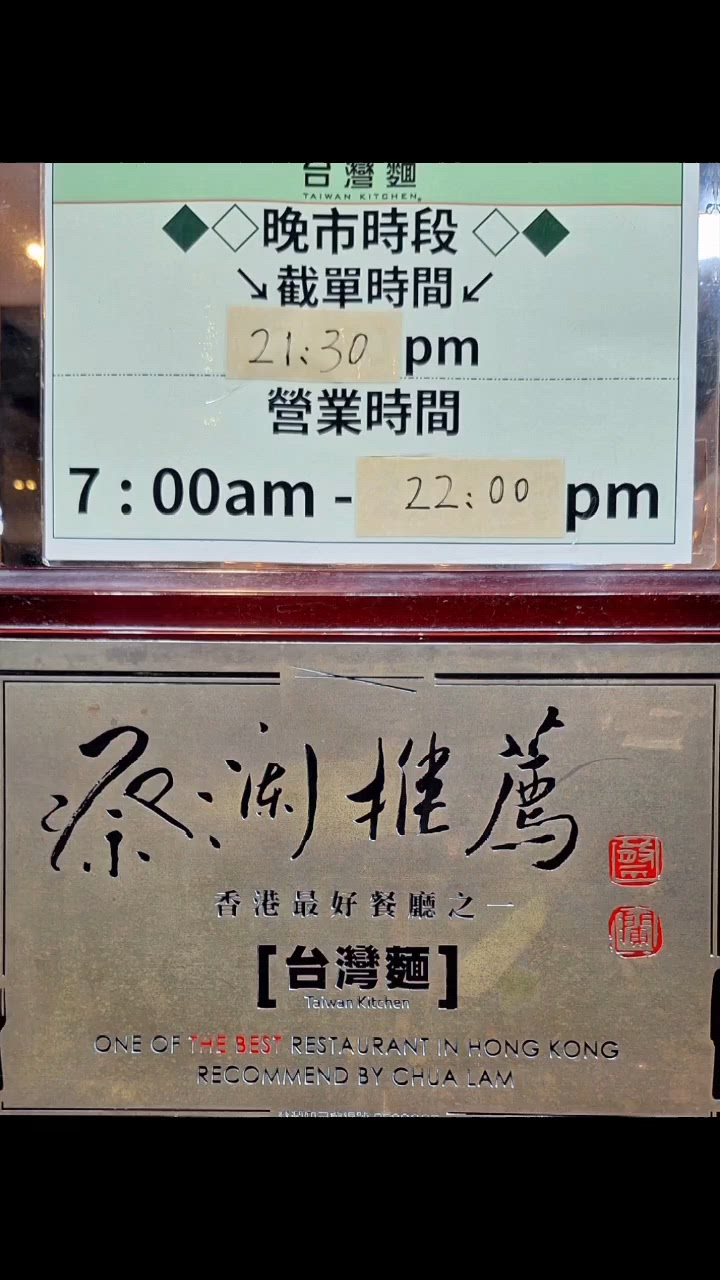 台灣麵
TAIWAN KITCHEN
晚市時段
↘截單時間↙
21:30 pm
營業時間
7:00am - 22:00 pm
蔡瀾推薦
香港最好餐廳之一
[台灣麵]
Taiwan Kitchen
ONE OF THE BEST RESTAURANT IN HONG KONG
RECOMMEND BY CHUA LAM